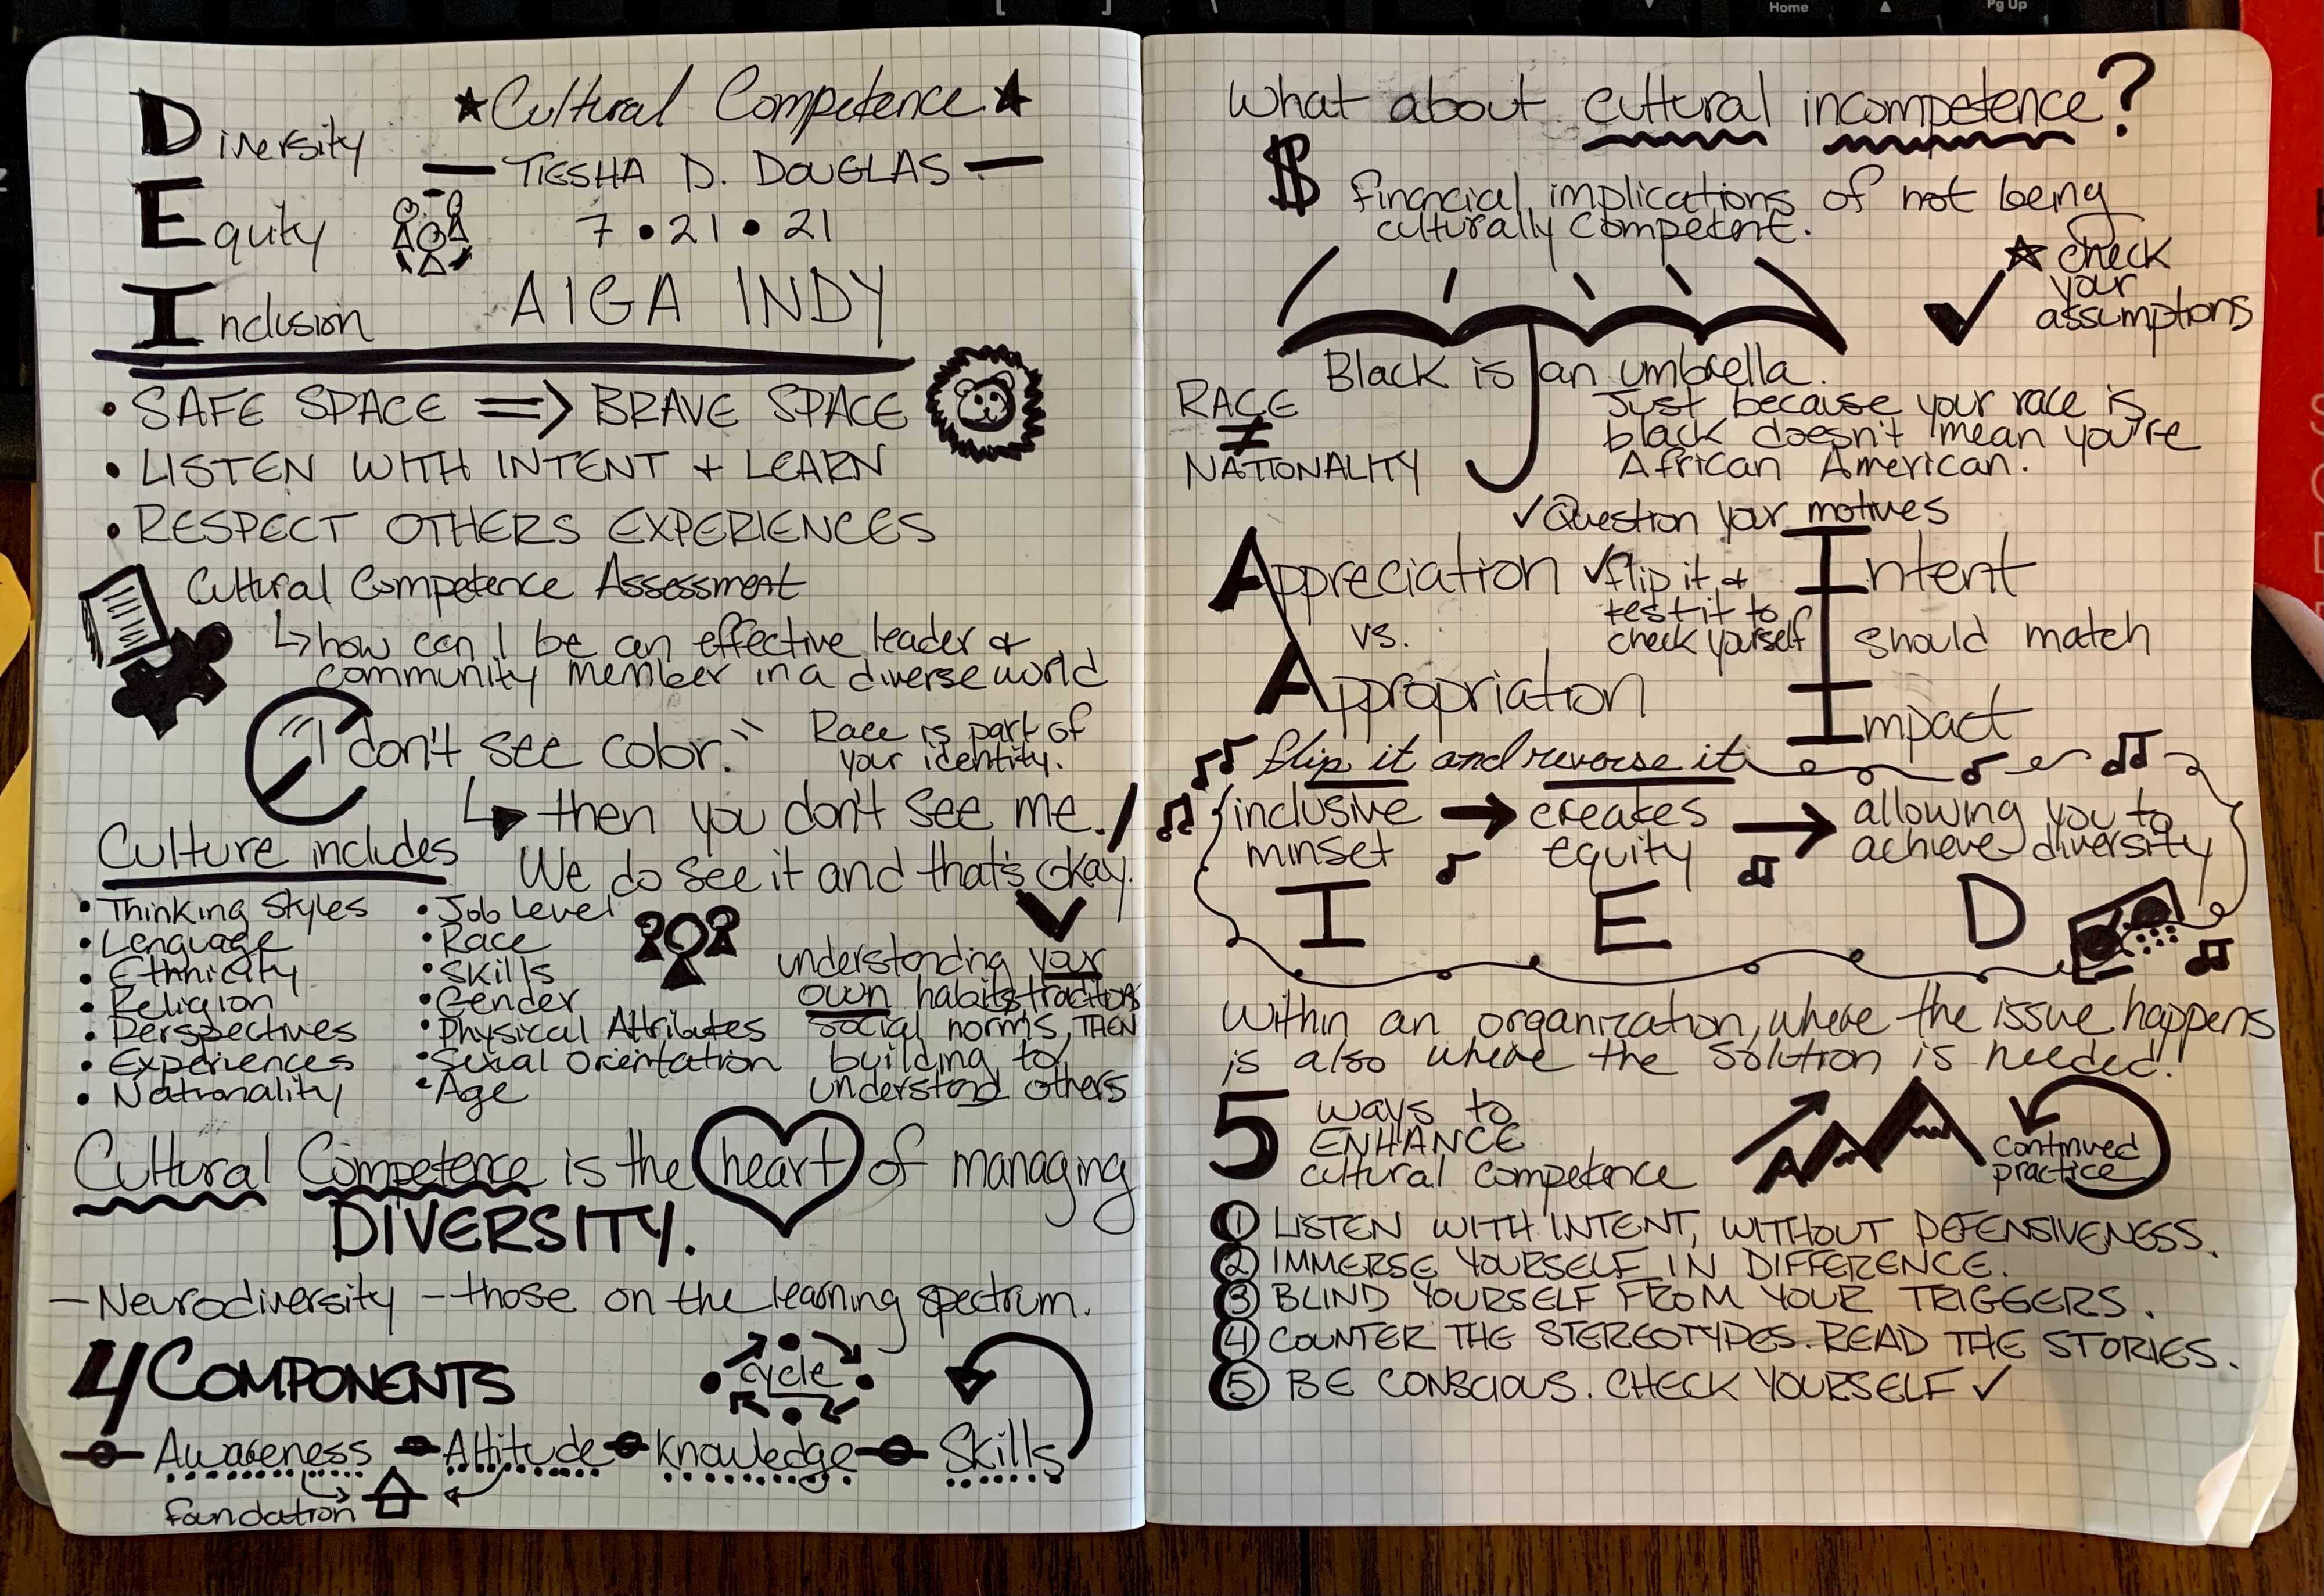 Diversity
Equity
Inclusion
★Cultural Competence★
— TIESHA D. DOUGLAS —
7 • 21 • 21
AIGA INDY
• SAFE SPACE => BRAVE SPACE
• LISTEN WITH INTENT + LEARN
• RESPECT OTHERS EXPERIENCES
Cultural Competence Assessment
↳ how can I be an effective leader &
community member in a diverse world
"I don't see color."
Race is part of
your identity.
↳ then you don't see me.
We do see it and that's okay.
Culture includes
• Thinking Styles
• Language
• Ethnicity
• Religion
• Perspectives
• Experiences
• Nationality
• Job Level
• Race
• Skills
• Gender
• Physical Attributes
• Sexual Orientation
• Age
understanding your
own habits, traditions
social norms, THEN
building to
understand others
Cultural Competence is the heart of managing
DIVERSITY.
— Neurodiversity — those on the learning spectrum.
4 COMPONENTS
cycle
Awareness Attitude Knowledge Skills
foundation
What about cultural incompetence?
$ financial implications of not being
culturally competent.
☆ check
your
assumptions
Black is an umbrella.
RACE
≠
NATIONALITY
Just because your race is
black doesn't mean you're
African American.
✓ Question your motives
Appreciation
vs.
Appropriation
✓ flip it &
test it to
check yourself
Intent
should match
Impact
flip it and reverse it
inclusive → creates → allowing you to
minset equity achieve diversity
I E D
Within an organization, where the issue happens
is also where the solution is needed!
5 ways to
ENHANCE
cultural competence
continued
practice
① LISTEN WITH INTENT, WITHOUT DEFENSIVENESS.
② IMMERSE YOURSELF IN DIFFERENCE.
③ BLIND YOURSELF FROM YOUR TRIGGERS.
④ COUNTER THE STEREOTYPES. READ THE STORIES.
⑤ BE CONSCIOUS. CHECK YOURSELF ✓
Home
Pg Up